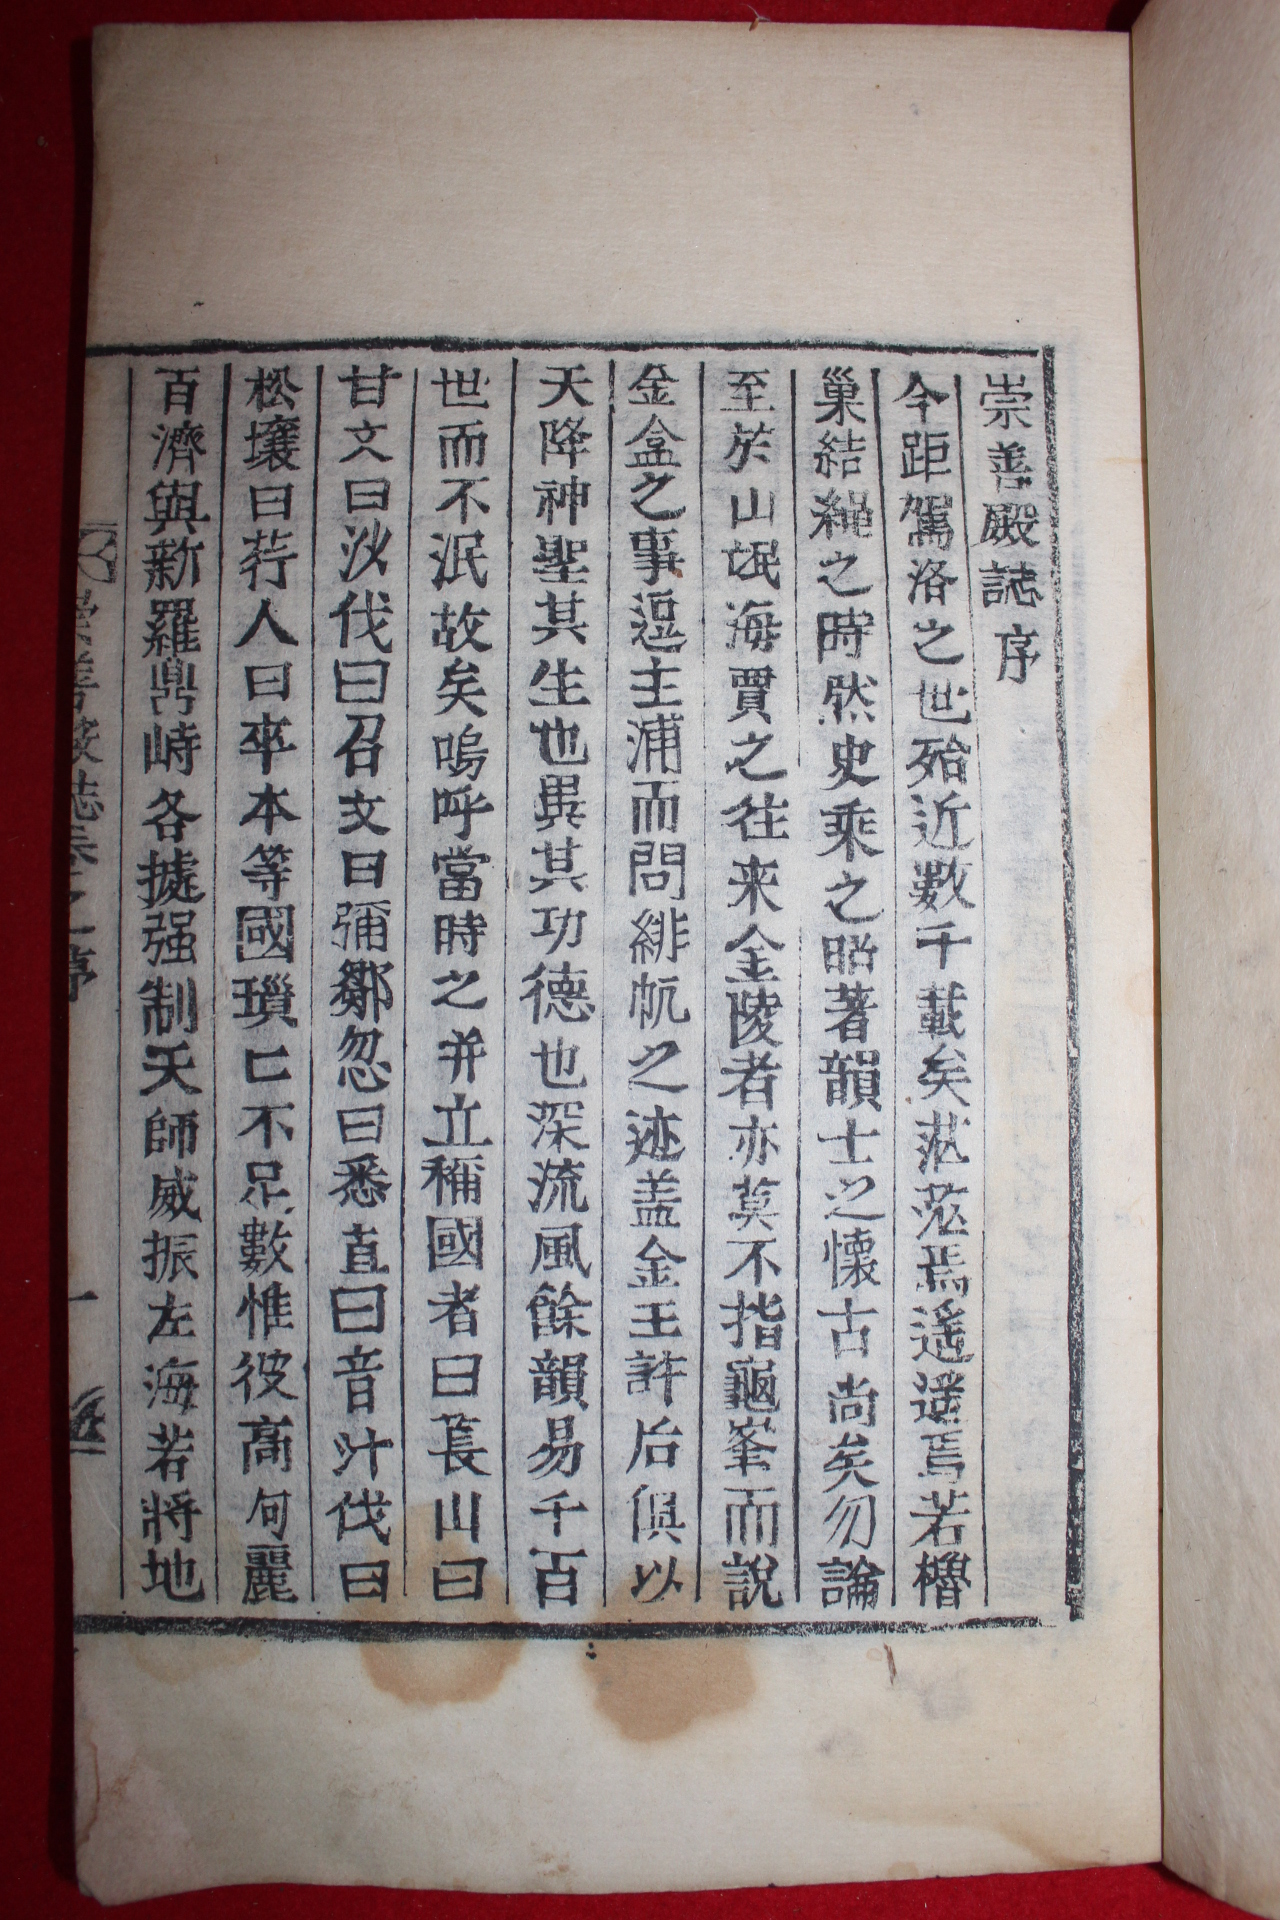 崇善殿誌序
今距駕洛之世殆近數千載矣茫茫焉遙遙焉若櫓
巢結繩之時然史乘之昭著韻士之懷古尚矣勿論
至於山氓海賈之往来金陵者亦莫不指龜峯而說
金盒之事逗主浦而問緋帆之迹盖金王許后俱以
天降神聖其生也異其功德也深流風餘韻易千百
世而不泯故矣嗚呼當時之并立稱國者曰萇山曰
甘文曰沙伐曰召文曰彌鄒忽曰悉直曰音汁伐曰
松壤曰荇人曰卒本等國瑣匕不足數惟彼高句麗
百濟與新羅鼎峙各據强制天師威振左海若將地
崇善殿誌卷之一序
一